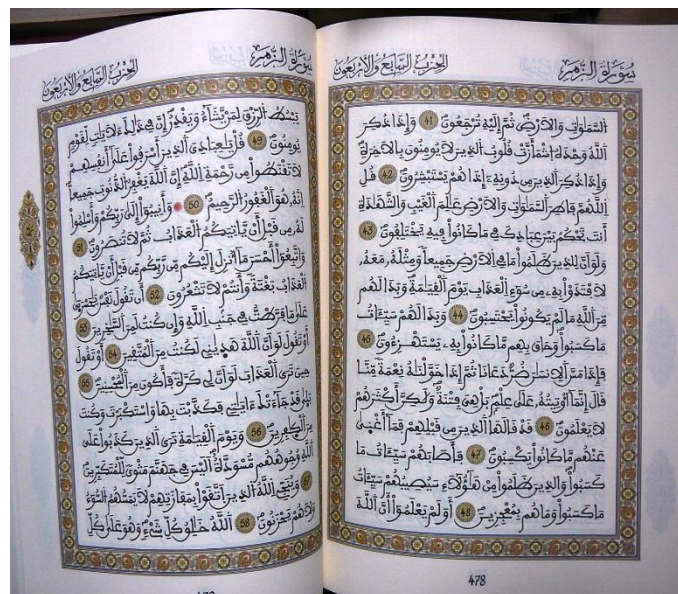 سورة الزمر الحزب السابع والأربعون
السموات والارض ثم إليه ترجعون 41 وإذا ذكر
الله وحده اشمأزت قلوب الذين لا يومنون بالاخرة
وإذا ذكر الذين من دونه إذا هم يستبشرون 42 قل
اللهم فاطر السموات والارض علم الغيب والشهادة
أنت تحكم بين عبادك في ما كانوا فيه يختلفون 43
ولو ان للذين ظلموا ما في الارض جميعا ومثله معه
لافتدوا به من سوء العذاب يوم القيمة وبدا لهم
من الله ما لم يكونوا يحتسبون 44 وبدا لهم سيئات
ما كسبوا وحاق بهم ما كانوا به يستهزءون 45
فإذا مس الانسن ضر دعانا ثم إذا خولنه نعمة منا
قال إنما أوتيته على علم بل هي فتنة ولكن أكثرهم
لا يعلمون 46 قد قالها الذين من قبلهم فما أغنى
عنهم ما كانوا يكسبون 47 فأصابهم سيئات ما
كسبوا والذين ظلموا من هؤلاء سيصيبهم سيئات
ما كسبوا وما هم بمعجزين 48 أولم يعلموا أن الله
478
سورة الزمر الحزب السابع والأربعون
يبسط الرزق لمن يشاء ويقدر إن في ذلك لايت لقوم
يومنون 49 قل يعبادي الذين أسرفوا على أنفسهم
لا تقنطوا من رحمة الله إن الله يغفر الذنوب جميعا
إنه هو الغفور الرحيم 50 وأنيبوا إلى ربكم وأسلموا
له من قبل أن ياتيكم العذاب ثم لا تنصرون 51
واتبعوا أحسن ما أنزل إليكم من ربكم من قبل أن ياتيكم
العذاب بغتة وأنتم لا تشعرون 52 أن تقول نفس يحسرتى
على ما فرطت في جنب الله وإن كنت لمن السخرين 53
أو تقول لو ان الله هديني لكنت من المتقين 54 أو تقول
حين ترى العذاب لو ان لي كرة فأكون من المحسنين 55
بلى قد جاءتك ءايتي فكذبت بها واستكبرت وكنت
من الكفرين 56 ويوم القيمة ترى الذين كذبوا على
الله وجوههم مسودة اليس في جهنم مثوى للمتكبرين
57 وينجي الله الذين اتقوا بمفازتهم لا يمسهم السوء
ولا هم يحزنون 58 الله خلق كل شيء وهو على كل